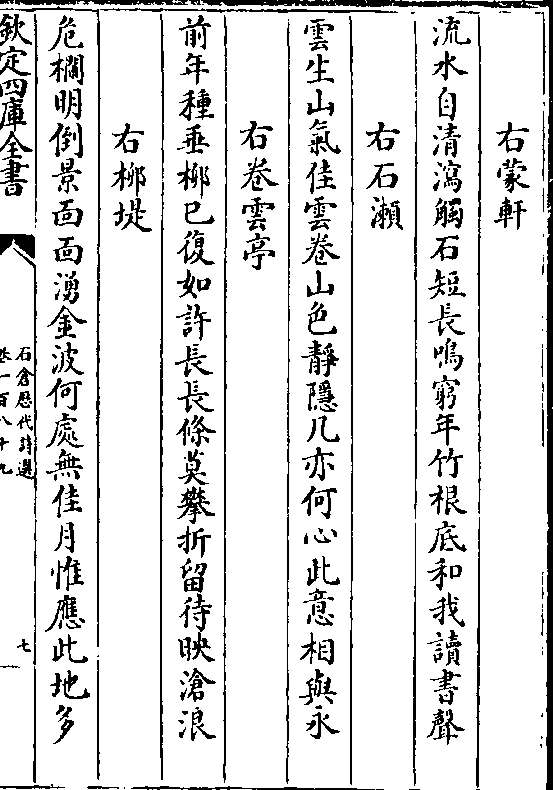 右蒙軒
流水自清瀉觸石短長鳴窮年竹根底和我讀書聲
右石瀨
雲生山氣佳雲卷山色靜隱几亦何心此意相與永
右卷雲亭
前年種垂柳已復如許長長條莫攀折留待映滄浪
右柳堤
危欄明倒景面面湧金波何處無佳月惟應此地多
欽定四庫全書
石倉歷代詩選
卷一百八十九
七